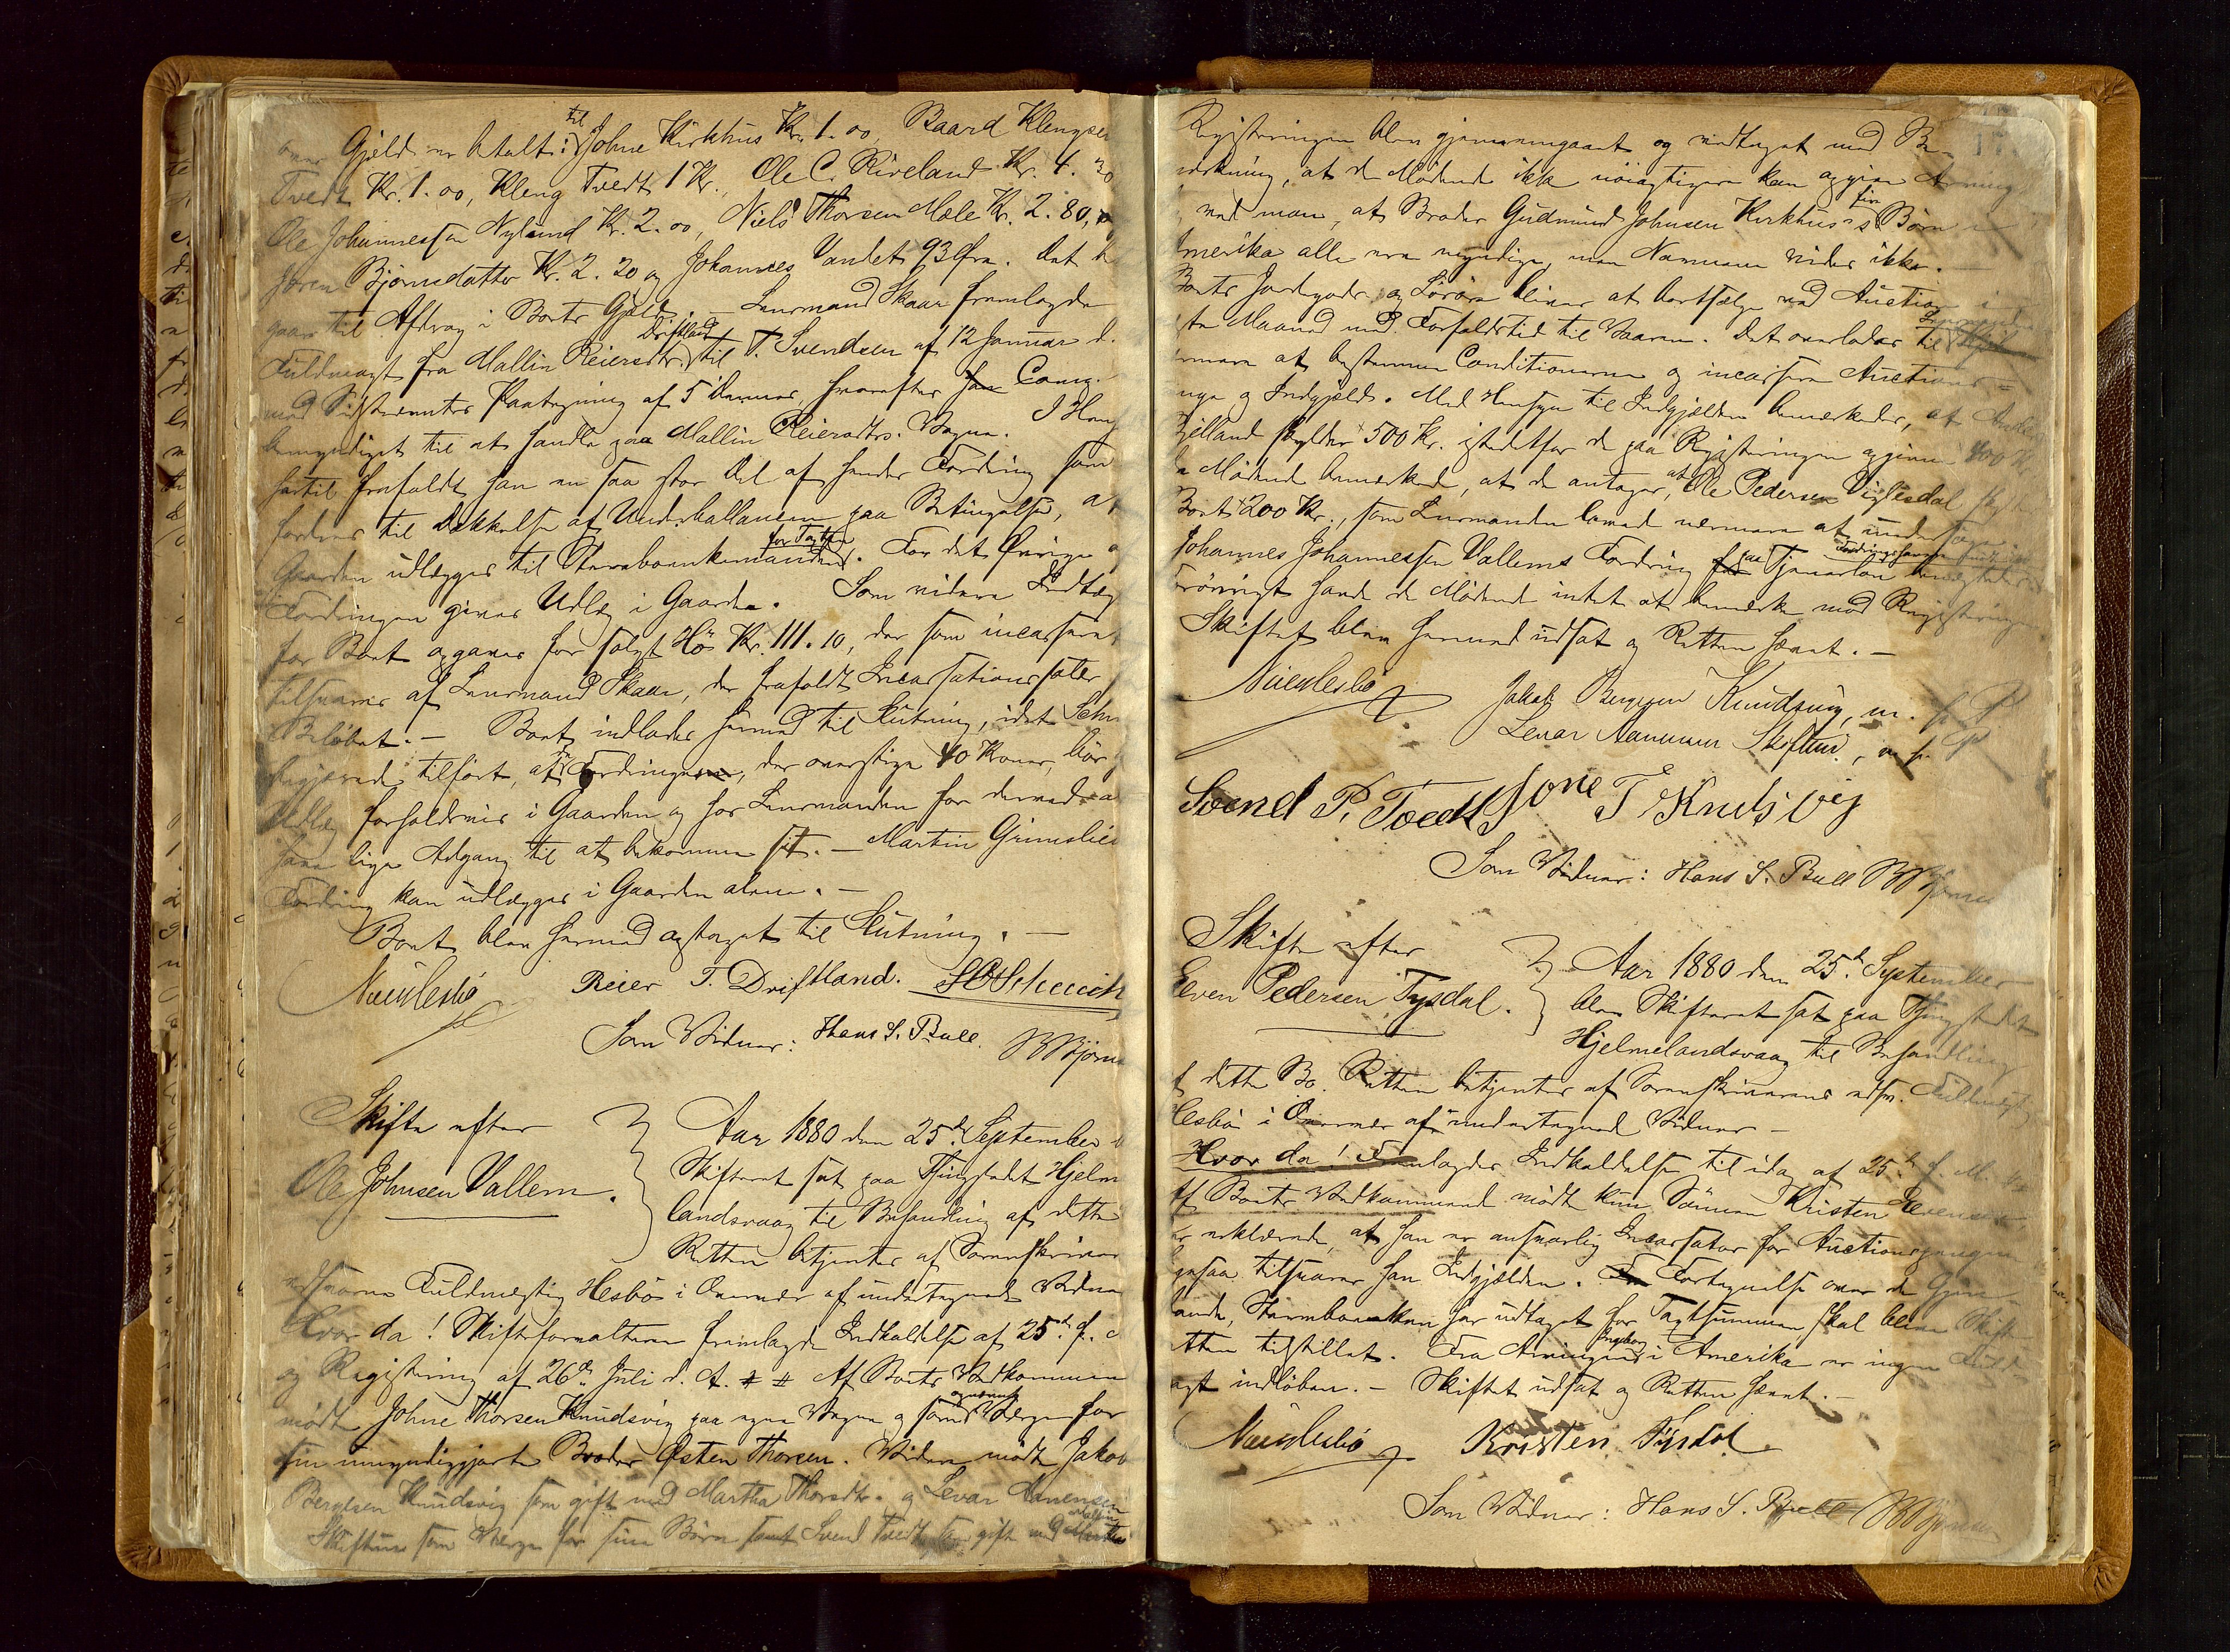 Gjeld er betalt: til Johne Kirkhus Kr. 1.00, Baard Klengsen
Tvedt Kr. 1.00, Kleng Tvedt 1 Kr., Ole C. Riveland Kr. 4.30
Ole Johannessen Nylund Kr. 2.00, Niels Thorsen Mæle Kr. 2.80,
Joren Bjørnsdatter Kr. 2.20 og Johannes Vandet 93 Øre. Det
gaar til Afdrag i Boets Gjeld. – Lensmand Skaar fremlagde
Fuldmagt fra Mallin Reiersdtr. Driftland til T. Svendsen af 12 Januar d.
med Paategning af 5 dennes, hvorefter Comp.
bemyndiget til at handle paa Mallin Reiersdtrs. Vegne. I Hen
hertil frafaldt han en saa stor Del af hendes Fordring som
fordres til Dækkelse af Underballancen paa Betingelse, at
Gaarden udlægges til Stervboenkemanden for Taxten. For det Øvrige
Fordringen gives Udlæg i Gaarden. Som videre Indtægt
for Boet opgaves for solgt Hø Kr. 111.10, der som incasseret
tilsvares af Lensmand Skaar, der frafaldt Incassationssalær
Beløbet. – Boet indlades hermed til Slutning, idet Schi
begjærede tilført, at Fordringer, der overstige 40 Kroner, bør
Udlæg forholdsvis i Gaarden og hos Lensmanden for dermed
have lige Adgang til at bekomme sit. – Martin Grimslie
Fordring kan udlægges i Gaarden alene. –
Boet blev hermed optaget til Slutning. –
Reier T. Driftland.
Som Vidner: Hans S. Bull. B Bjørns
Skifte efter
Ole Johnsen Vallem.
Aar 1880 den 25de September
Skifteret sat paa Thingstedet Hjelm
landsvaag til Behandling af dette
Retten betjentes af Sorenskriver
edsvorne Fuldmægtig Hesbø i Overvær af undertegnede Vidner
Hvor da! Skifteforvalteren fremlagde Indkaldelse af 25de f.
og Registrering af 26de Juli d. A. Af Boets Vedkommen
mødte Johne Thorsen Knudsvig paa egne Vegne og som opnævnt Verge for
sin umyndiggjorte Broder Østen Thorsen. Videre mødte Jakob
Bergesen Knudsvig som gift med Martha Thorsdtr. og Levar Aanensen
Skiftun som Verge for sine Børn samt Svend Tvedt, som gift med
Registreringen blev gjennemgaaet og vedtaget med Be-
mærkning, at de Mødende ikke nøiagtigere kan opgive Arving
end man, at Broder Gudmund Johnsen Kirkhus's fire Børn i
Amerika alle ere myndige, men Navnene vides ikke. –
Boets Jordgods og Løsøre bliver at bortsælge ved Auction i
ste Maaned med Forfaldstid til Vaaren. Det overlades til Lensmanden
nærmere at bestemme Conditionerne og incassere Auctions-
enge og Indgjæld. Med Hensyn til Indgjælden bemærkedes, at
skylder 500 Kr. istedetfor de paa Registreringen opgivne 400 Kr.
De Mødende bemærkede, at de antager, at Ole Pedersen Viglesdal
Boet 200 Kr., som Lensmanden lovede nærmere at undersøge.
Johannes Johannessen Vallems Fordring paa Tjenerløn benægtedes
Forøvrigt havde de Mødende intet at bemærke mod Registreringen
Skiftet blev hermed udsat og Retten hævet. –
Jakob Bergesen Knudsvig, m. f. P
Levar Aanensen Skiftun, m. f. P
Svend P. Toedt Jone T Knutsvig
Som Vidner: Hans S. Bull B Bjørns
Skifte efter
Elven Pedersen Tysdal.
Aar 1880 den 25de September
blev Skifteret sat paa Thingstedet
Hjelmelandsvaag til Behandling
af dette Bo. Retten betjentes af Sorenskriverens edsv. Fuldmægtig
Hesbø i Overvær af undertegnede Vidner –
Hvor da! Fremlagdes Indkaldelse til idag af 25de f. M.
Af Boets Vedkommende mødte kun Sønnen Kristen Elvensen
er erklærede, at han er ansvarlig Incassator for Auctionspengene
ligesaa tilsvarer han Indgjælden. Fortegnelse over de Gjen-
stande, Stervboenken har udtaget for Taxtsummen skal blive Skift
etten tilstillet. Fra Arvingen Ingeborg i Amerika er ingen Fuld
agt indløben. – Skiftet udsat og Retten hævet. –
Kristen Tysdal
Som Vidner: Hans S. Bull B Bjørnsen